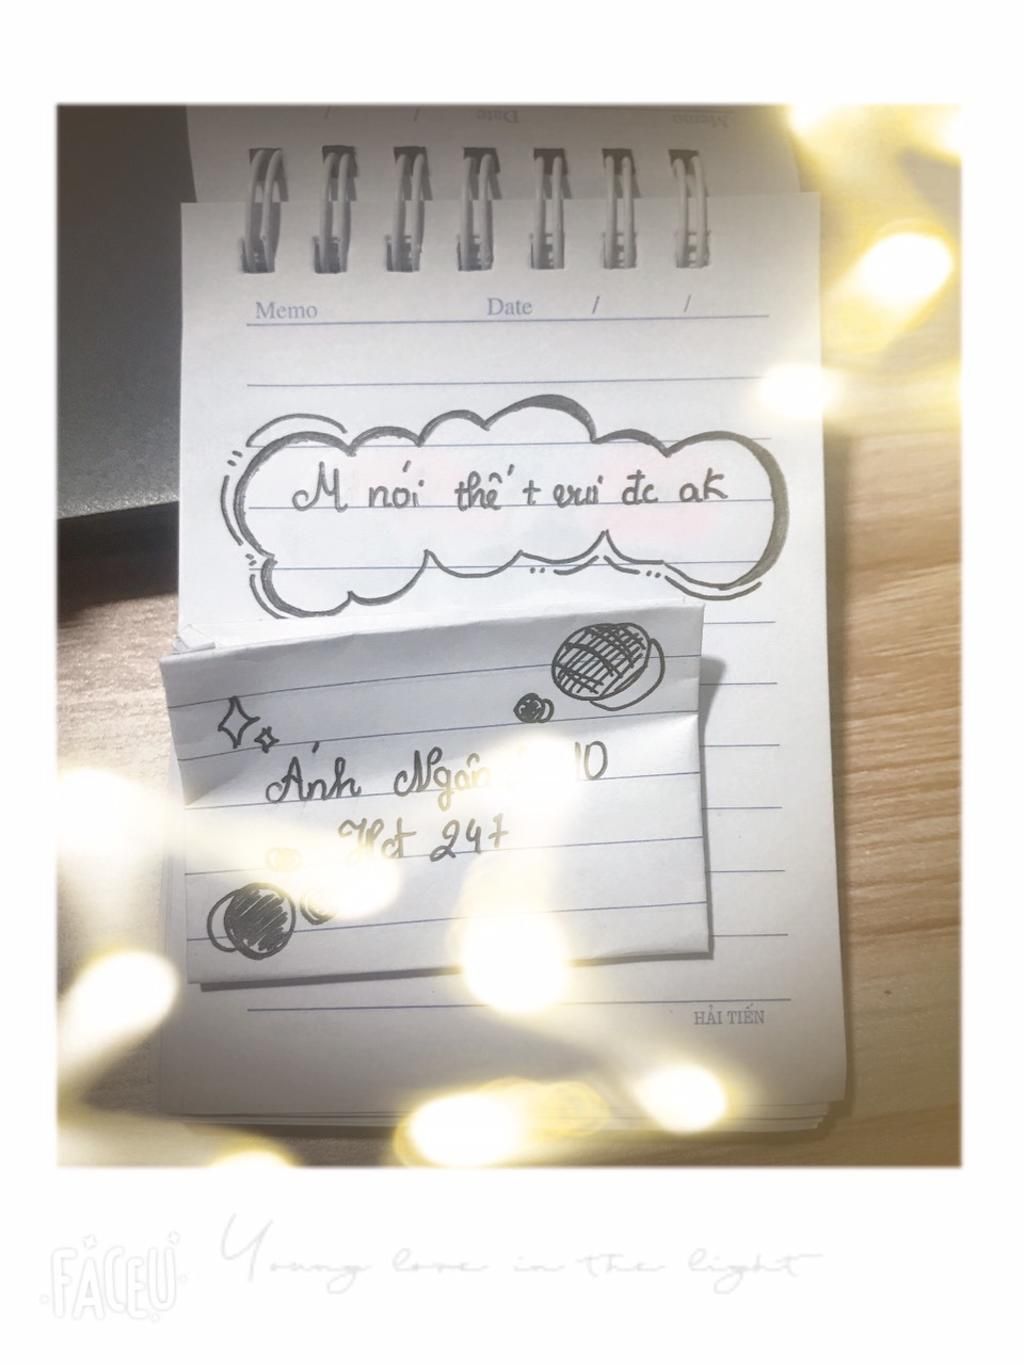 Memo Date / /
M nói thế t vui đc ak
Ánh Ngân 10
Hct 247
HẢI TIẾN
FACEU
Young love in the light